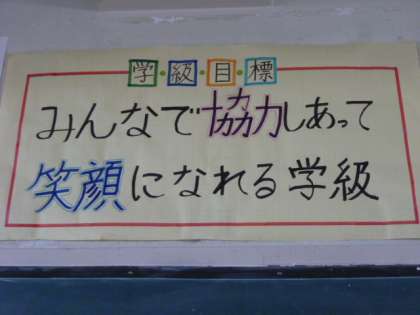 学・級・目・標
みんなで協力しあって
笑顔になれる学級